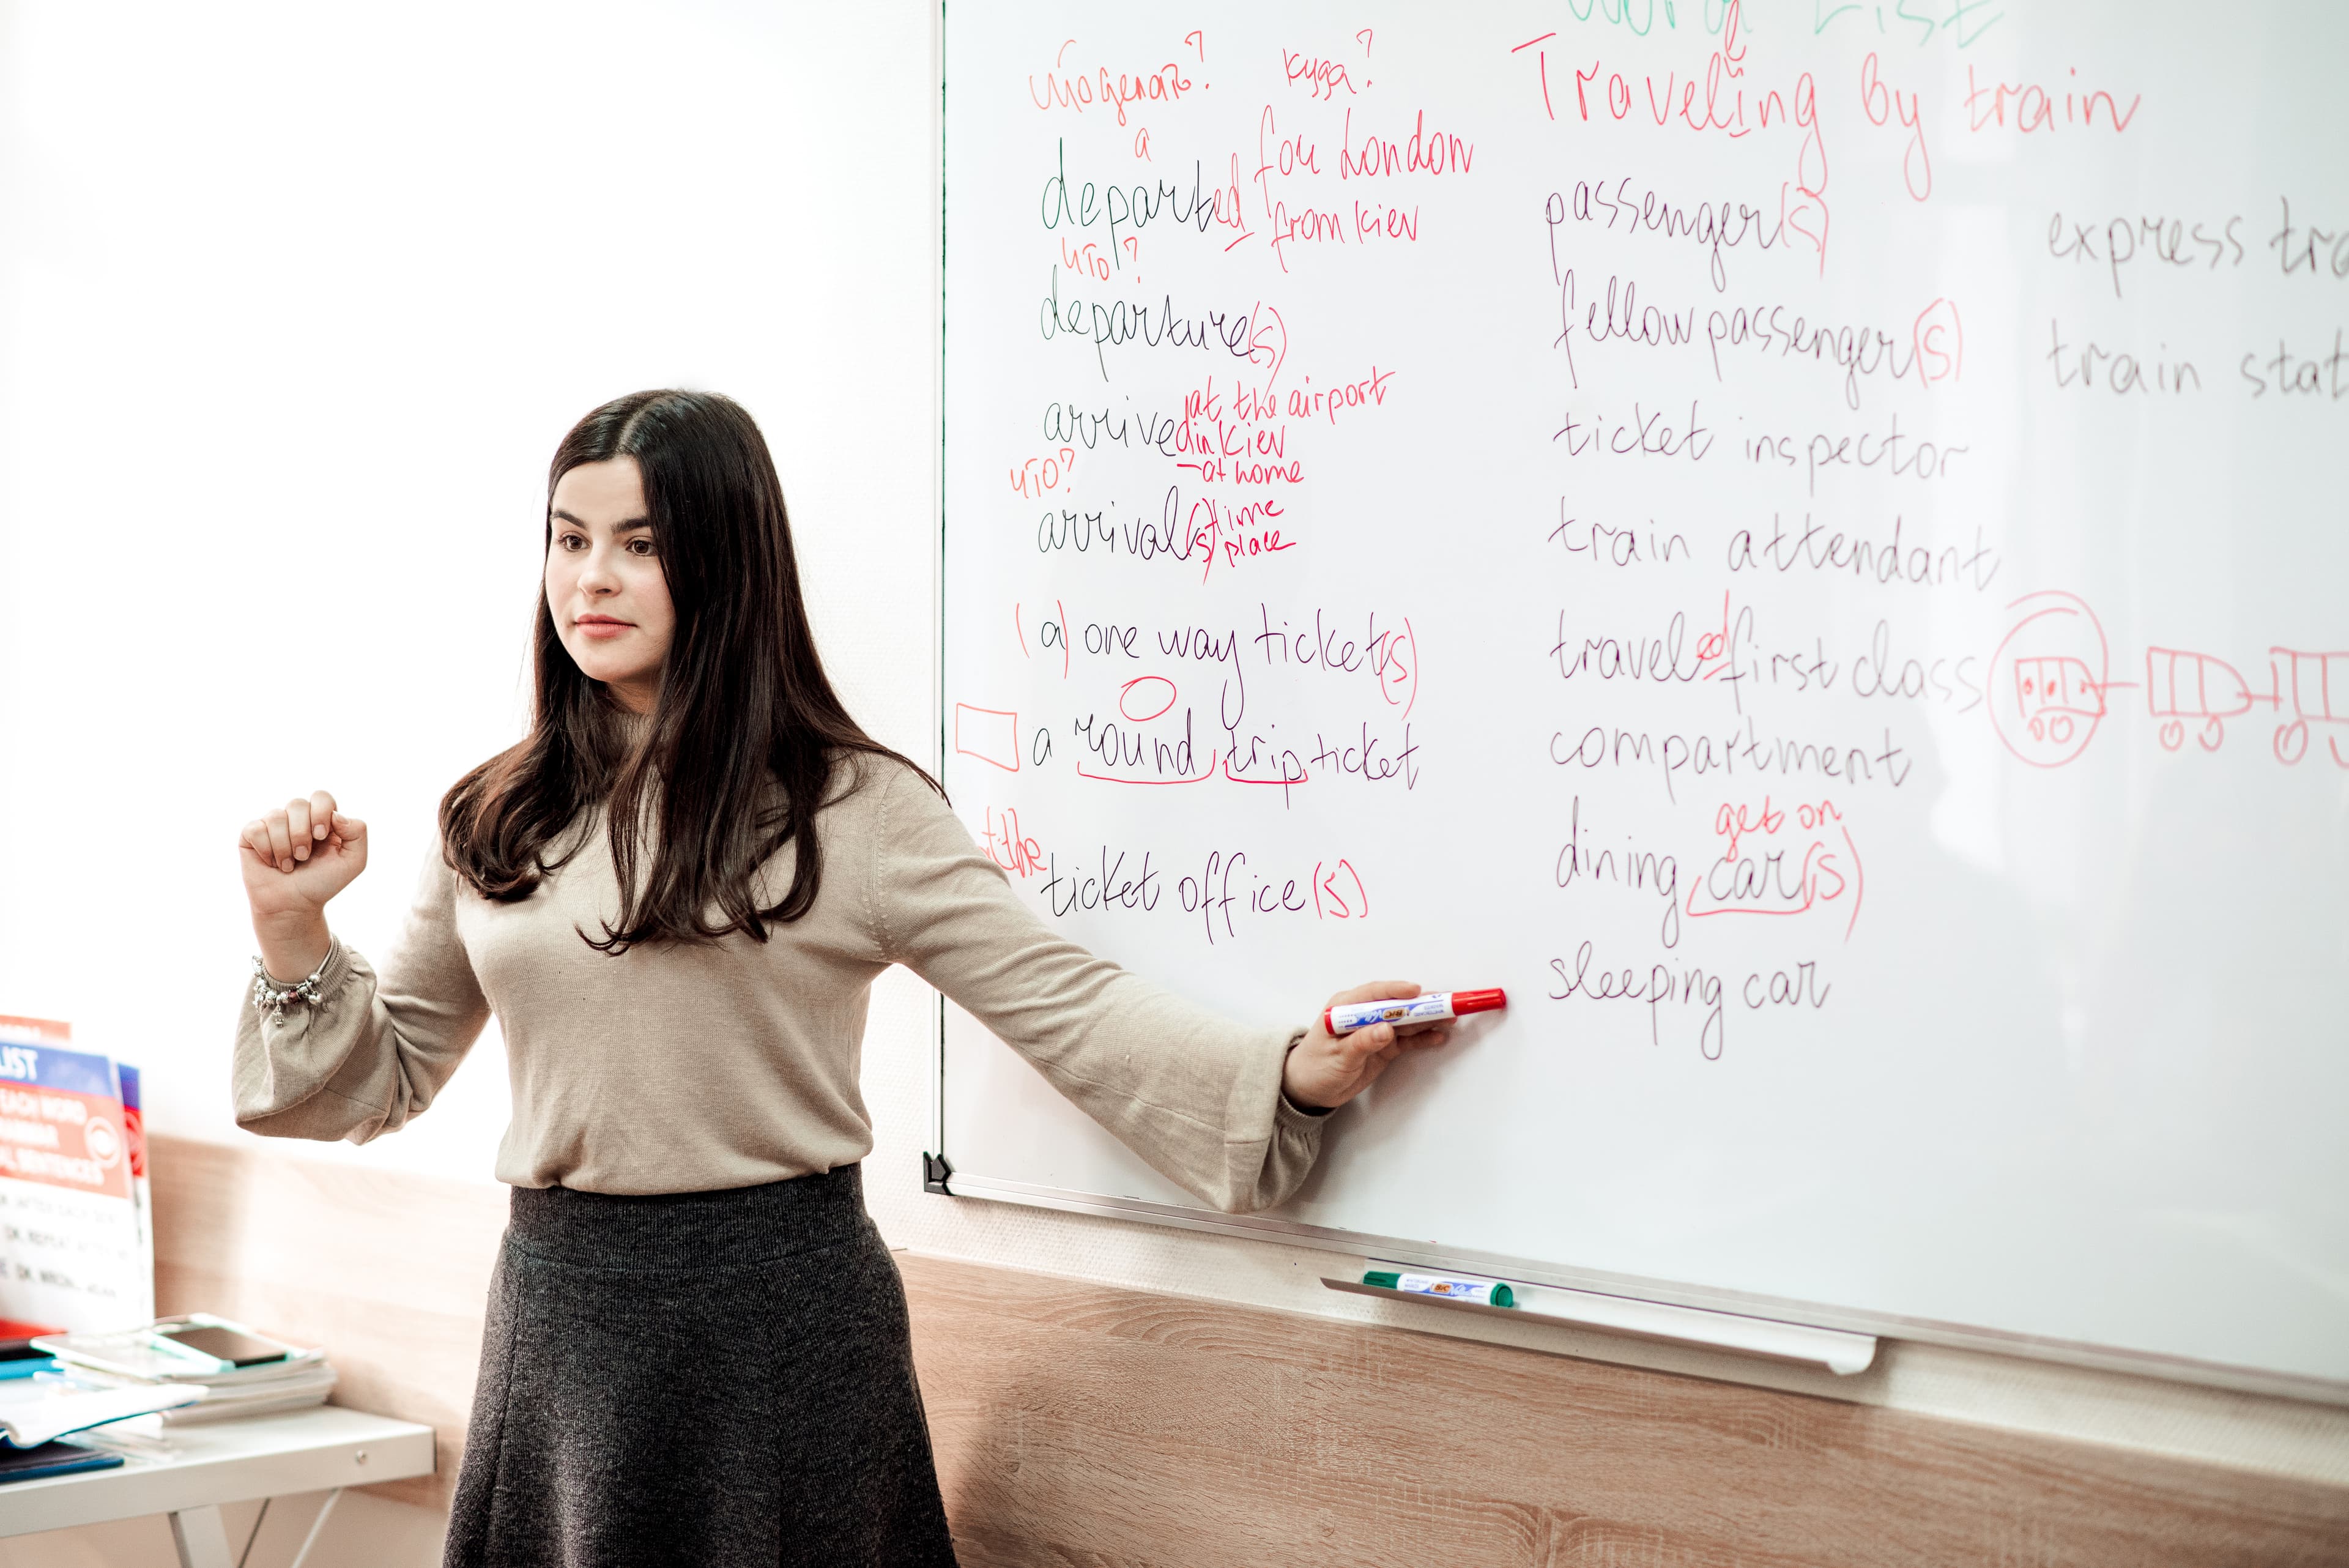 Word List
Traveling by train
l
что делать?
куда?
a
departed for London
from Kiev
что?
departure(s)
arrived at the airport
in Kiev
– at home
что?
arrival(s) time
place
(a) one way ticket(s)
a round trip ticket
the
ticket office(s)
passenger(s)
fellow passenger(s)
ticket inspector
train attendant
traveled first class
compartment
get on
dining car(s)
sleeping car
express tra
train stat
BIC
BIC
LIST
EACH WORD
GRAMMAR
AL SENTENCES